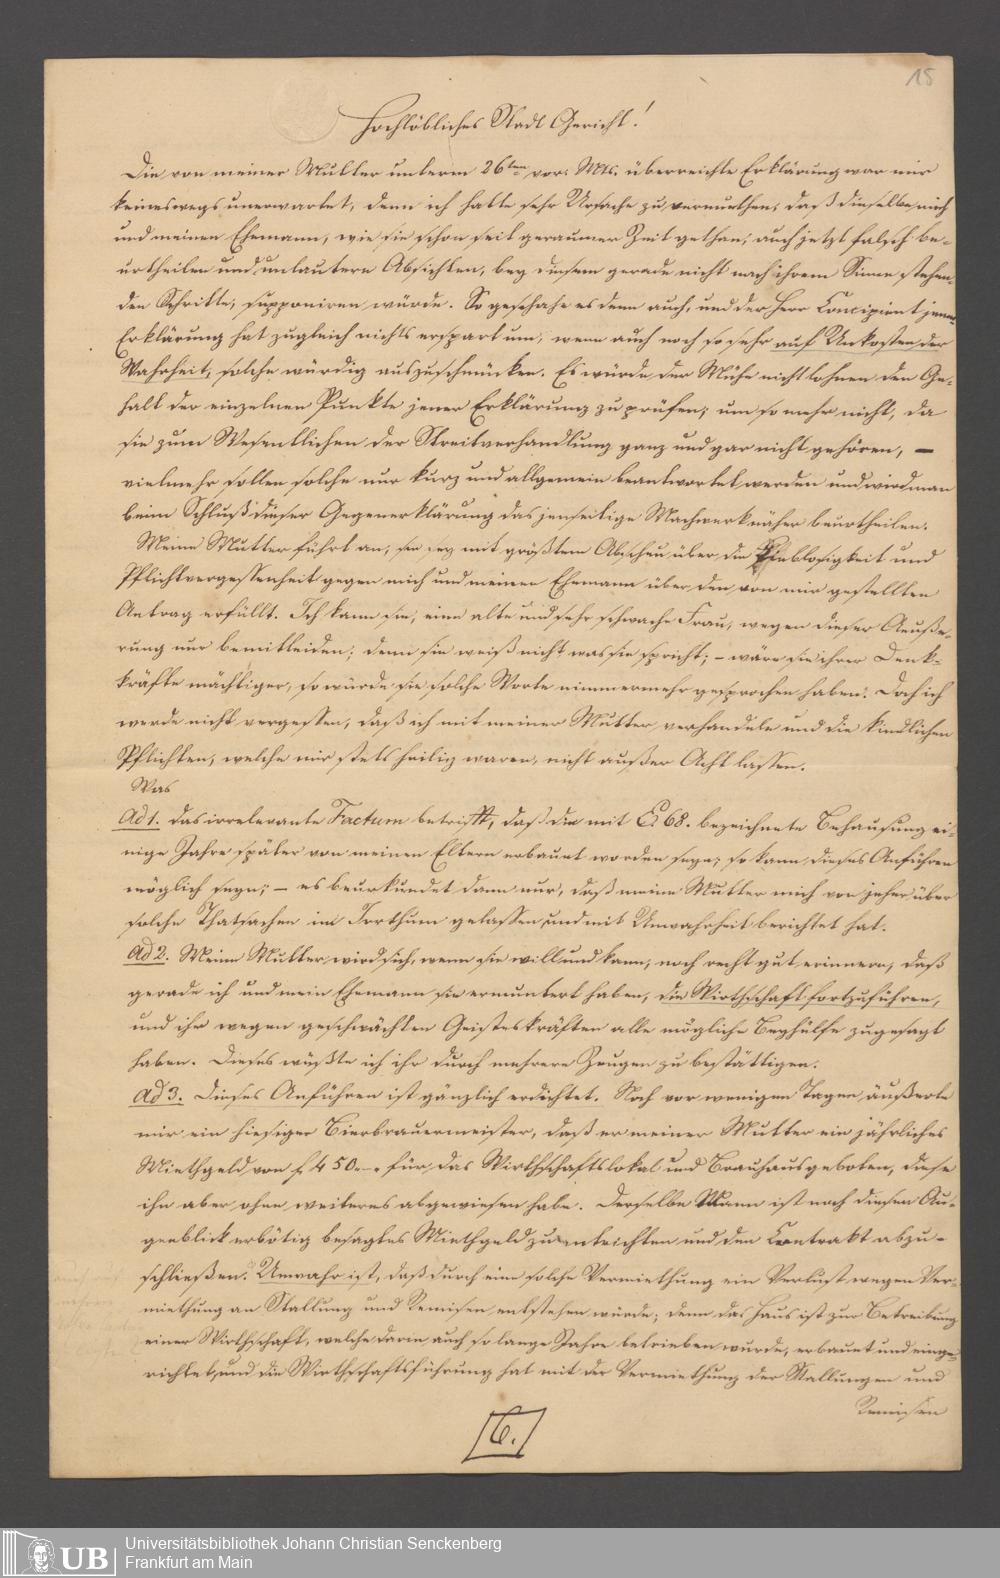 15
Hochlöbliches Stadt Gericht!
Die von meiner Mutter unterm 26ten vor. Mts. überreichte Erklärung war mir
keineswegs unerwartet, denn ich hatte sehr Ursache zu vermuthen, daß dieselbe mich
und meinen Ehemann, wie sie schon seit geraumer Zeit gethan, auch jetzt falsch be-
urtheilen und unlautere Absichten, bey diesem gerade nicht nach ihrem Sinne stehen-
den Schritte, supponiren würde. So geschahe es denn auch, und der Herr Concipient jener
Erklärung hat zugleich nichts erspart um, wenn auch noch so sehr auf Unkosten der
Wahrheit, solche würdig auszuschmücken. Es würde der Mühe nicht lohnen den Ge-
halt der einzelnen Punkte jener Erklärung zu prüfen; um so mehr nicht, da
sie zum Wesentlichen der Streitverhandlung ganz und gar nicht gehören, —
vielmehr sollen solche nur kurz und allgemein beantwortet werden und wird man
beim Schluß dieser Gegenerklärung das jenseitige Machwerk näher beurtheilen.
Meine Mutter führt an, sie sey mit größtem Abscheu über die Lieblosigkeit und
Pflichtvergessenheit gegen mich und meinen Ehemann über den von mir gestellten
Antrag erfüllt. Ich kann sie, eine alte und sehr schwache Frau, wegen dieser Aeuße-
rung nur bemitleiden; denn sie weiß nicht was sie spricht; – wäre sie ihrer Denk-
kräfte mächtiger, so würde sie solche Worte nimmermehr gesprochen haben. Doch ich
werde nicht vergessen, daß ich mit meiner Mutter verhandele und die kindlichen
Pflichten, welche mir stets heilig waren, nicht außer Acht lassen.
Was
Ad 1. das irrelevante Factum betrifft, daß die mit 68. bezeichnete Behausung ei-
nige Jahre später von meinen Eltern erbaut worden seyn; so kann dieses Anführen
möglich seyn; – es beurkundet dann nur, daß meine Mutter mich von jeher über
solche Thatsachen im Irrthum gelassen, und mit Unwahrheit berichtet hat.
Ad 2. Meine Mutter wird sich, wenn sie will und kann, noch recht gut erinnern, daß
gerade ich und mein Ehemann sie ermuntert haben, die Wirthschaft fortzuführen,
und ihr wegen geschwächten Geisteskräften alle mögliche Beyhülfe zugesagt
haben. Dieses wüßte ich ihr durch mehrere Zeugen zu bestättigen.
Ad 3. Dieses Anführen ist gänzlich erdichtet. Noch vor wenigen Tagen äußerte
mir ein hiesiger Bierbrauermeister, daß er meiner Mutter ein jährliches
Miethgeld von f 450.–. für das Wirthschaftslokal und Brauhaus geboten, diese
ihn aber ohne weiteres abgewiesen habe. Derselbe Mann ist noch diesen Au-
genblick erbötig besagtes Miethgeld zu entrichten und den Contrakt abzu-
schließen. Unwahr ist, daß durch eine solche Vermiethung ein Verlust wegen Ver-
miethung an Stallung und Remisen entstehen würde; denn das Haus ist zur Betreibung
einer Wirthschaft, welche darin auch so lange Jahre betrieben wurde, erbauet und einge-
richtet, und die Wirthschaftsführung hat mit der Vermiethung der Stallungen und
Remisen
6.
UB
Universitätsbibliothek Johann Christian Senckenberg
Frankfurt am Main